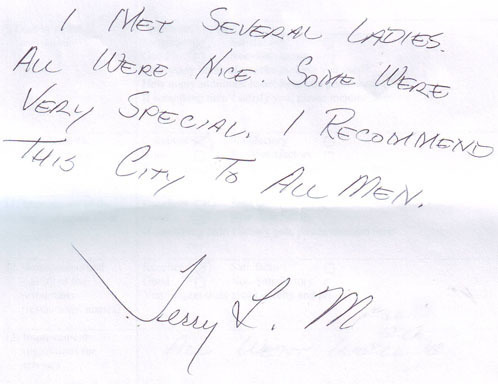 I MET SEVERAL LADIES.
ALL WERE NICE. SOME WERE
VERY SPECIAL. I RECOMMEND
THIS CITY TO ALL MEN.
Terry L. M